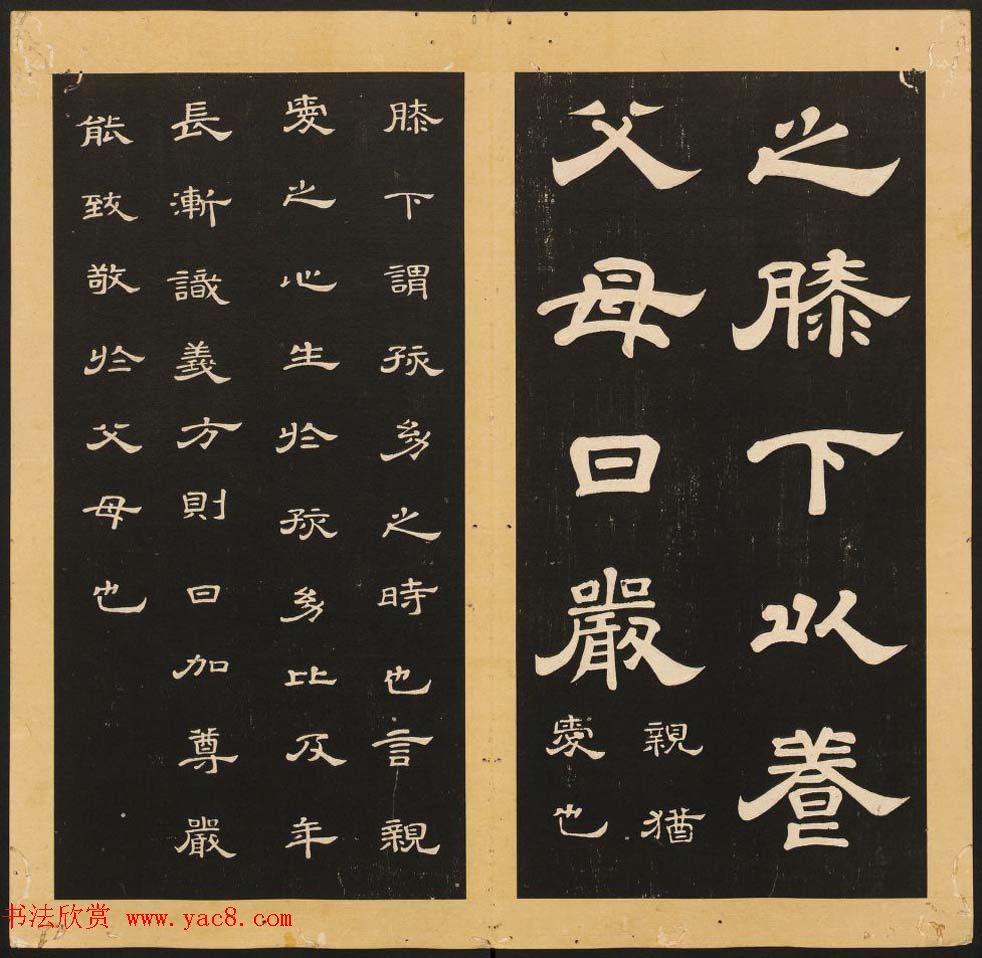 之膝下以養
父母日嚴
親猶
愛也
膝下謂孩幼之時也言親
愛之心生於孩幼比及年
長漸識義方則日加尊嚴
能致敬於父母也
书法欣赏 www.yac8.com